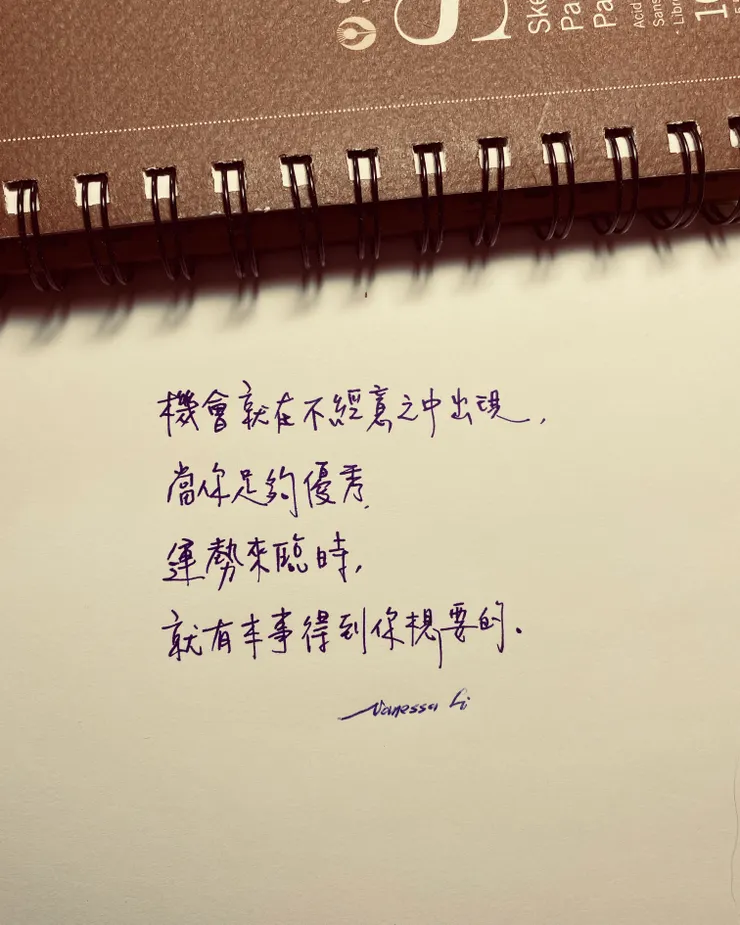 Ske
Pa
Pa
Acid
Sans
Libr
機會就在不經意之中出現,
當你足夠優秀.
運勢來臨時,
就有本事得到你想要的.
Vanessa Li